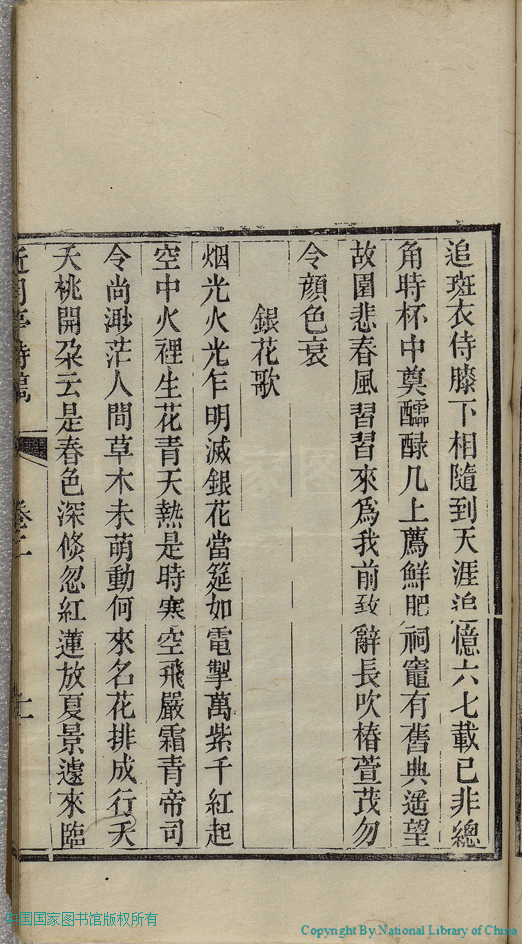 追斑衣侍膝下相隨到天涯追憶六七載已非總
角時杯中奠醹醁几上薦鮮肥祠竈有舊典遥望
故園悲春風習習來爲我前致辭長吹椿萱茂勿
令顔色衰
銀花歌
烟光火光乍明滅銀花當筵如電掣萬紫千紅起
空中火裡生花青天熱是時寒空飛嚴霜青帝司
令尚渺茫人間草木未萌動何來名花排成行夭
夭桃開朶云是春色深倐忽紅蓮放夏景遽來臨
卷二
中国国家图书馆版权所有
Copyright By National Library of China